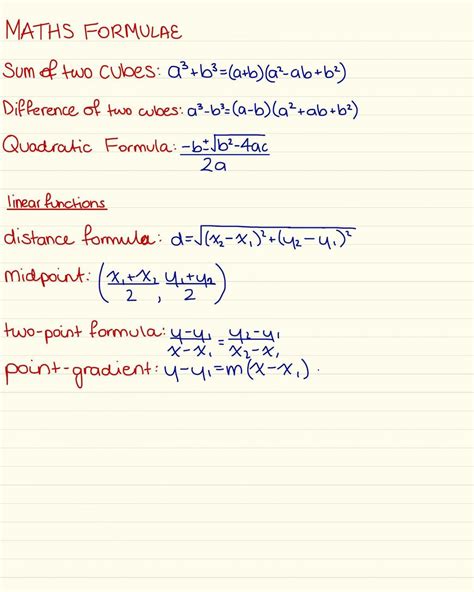 MATHS FORMULAE
Sum of two cubes: a³+b³=(a+b)(a²-ab+b²)
Difference of two cubes: a³-b³=(a-b)(a²+ab+b²)
Quadratic Formula: -b±√b²-4ac / 2a
linear functions
distance formula: d=√(x₂-x₁)²+(y₂-y₁)²
midpoint: (x₁+x₂/2, y₁+y₂/2)
two-point formula: y-y₁/x-x₁ = y₂-y₁/x₂-x₁
point-gradient: y-y₁=m(x-x₁).